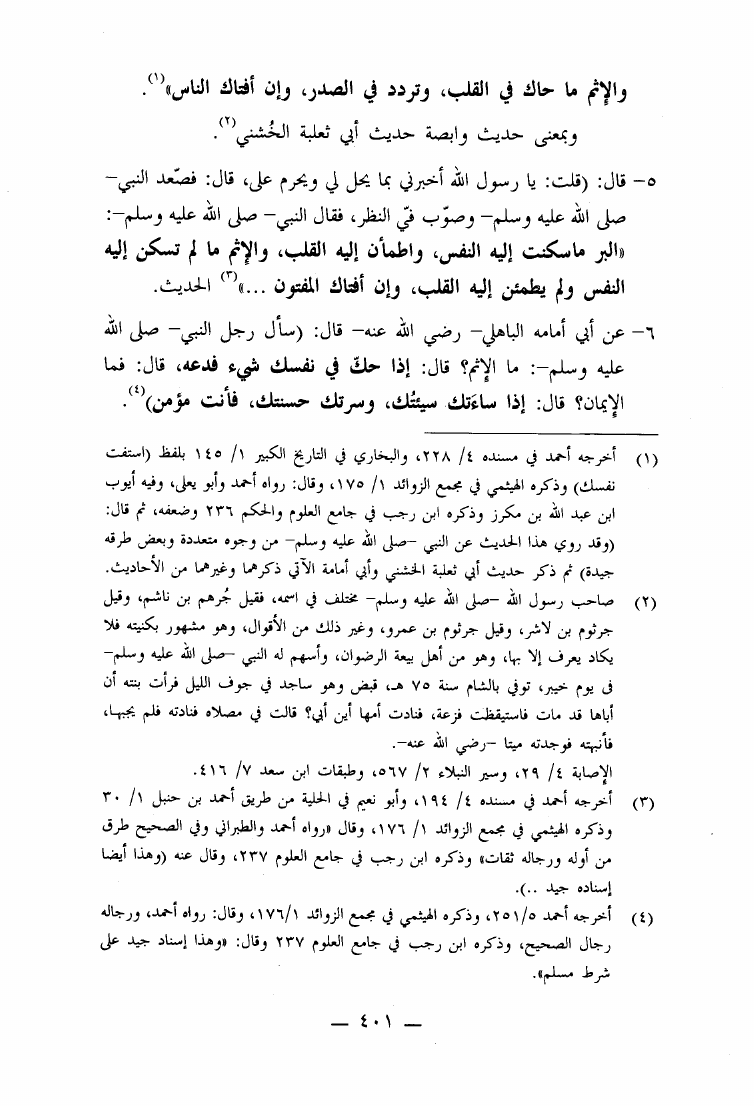 والإثم ما حاك في القلب، وتردد في الصدر، وإن أفتاك الناس»(١).
وبمعنى حديث وابصة حديث أبي ثعلبة الخُشني(٢).
٥– قال: (قلت: يا رسول الله أخبرني بما يحل لي ويحرم على، قال: فصّعد النبي–
صلى الله عليه وسلم– وصوّب فيّ النظر، فقال النبي– صلى الله عليه وسلم–:
«البر ماسكنت إليه النفس، واطمأن إليه القلب، والإثم ما لم تسكن إليه
النفس ولم يطمئن إليه القلب، وإن أفتاك المفتون ...»(٣) الحديث.
٦– عن أبي أمامه الباهلي– رضي الله عنه– قال: (سأل رجل النبي– صلى الله
عليه وسلم–: ما الإثم؟ قال: إذا حكّ في نفسك شيء فدعه، قال: فما
الإيمان؟ قال: إذا ساءَتك سيئتُك، وسرتك حسنتك، فأنت مؤمن)(٤).
(١) أخرجه أحمد في مسنده ٤/ ٢٢٨، والبخاري في التاريخ الكبير ١/ ١٤٥ بلفظ (استفت
نفسك) وذكره الهيثمي في مجمع الزوائد ١/ ١٧٥، وقال: رواه أحمد وأبو يعلى، وفيه أيوب
ابن عبد الله بن مكرز وذكره ابن رجب في جامع العلوم والحكم ٢٣٦ وضعفه، ثم قال:
(وقد روي هذا الحديث عن النبي –صلى الله عليه وسلم– من وجوه متعددة وبعض طرقه
جيدة) ثم ذكر حديث أبي ثعلبة الخشني وأبي أمامة الآتي ذكرهما وغيرهما من الأحاديث.
(٢) صاحب رسول الله –صلى الله عليه وسلم– مختلف في اسمه، فقيل جُرهم بن ناشم، وقيل
جرثوم بن لاشر، وقيل جرثوم بن عمرو، وغير ذلك من الأقوال، وهو مشهور بكنيته فلا
يكاد يعرف إلا بها، وهو من أهل بيعة الرضوان، وأسهم له النبي –صلى الله عليه وسلم–
فى يوم خيبر، توفي بالشام سنة ٧٥ هـ، قبض وهو ساجد في جوف الليل فرأت بنته أن
أباها قد مات فاستيقظت فزعة، فنادت أمها أين أبي؟ قالت في مصلاه فنادته فلم يجبها،
فأنبهته فوجدته ميتا –رضي الله عنه–.
الإصابة ٤/ ٢٩، وسير النبلاء ٢/ ٥٦٧، وطبقات ابن سعد ٧/ ٤١٦.
(٣) أخرجه أحمد في مسنده ٤/ ١٩٤، وأبو نعيم في الحلية من طريق أحمد بن حنبل ١/ ٣٠
وذكره الهيثمي في مجمع الزوائد ١/ ١٧٦، وقال «رواه أحمد والطبراني وفي الصحيح طرق
من أوله ورجاله ثقات» وذكره ابن رجب في جامع العلوم ٢٣٧، وقال عنه (وهذا أيضا
إسناده جيد ..).
(٤) أخرجه أحمد ٢٥١/٥، وذكره الهيثمي في مجمع الزوائد ١٧٦/١، وقال: رواه أحمد، ورجاله
رجال الصحيح، وذكره ابن رجب في جامع العلوم ٢٣٧ وقال: «وهذا إسناد جيد على
شرط مسلم».
— ٤٠١ —